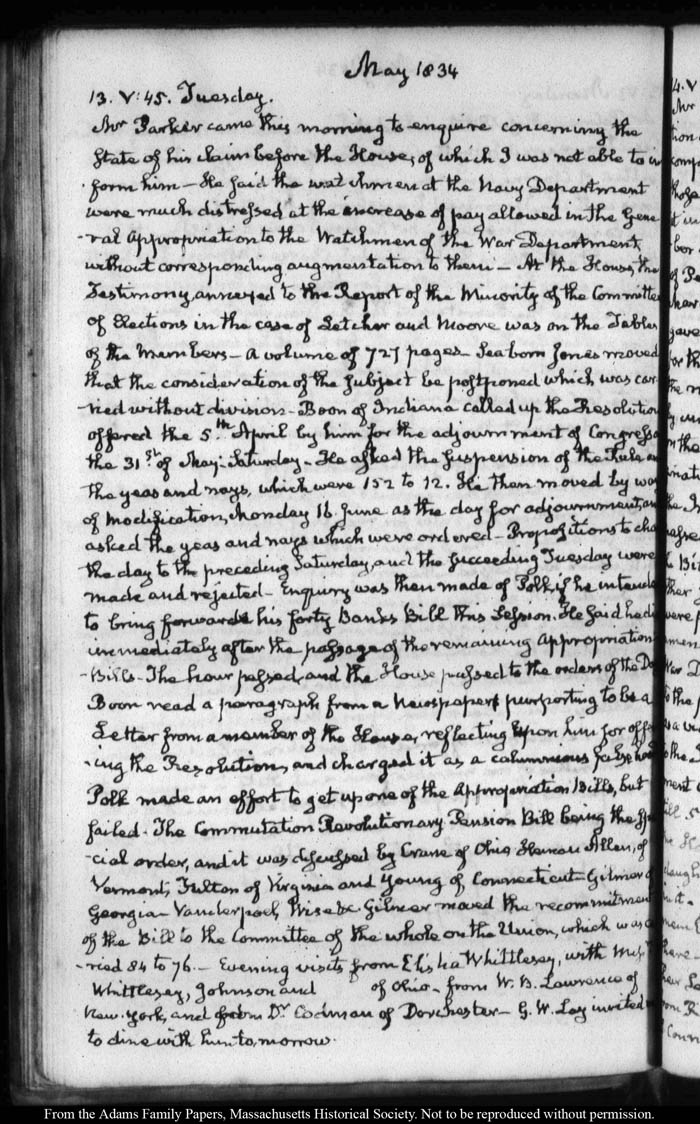 May 1834
13. V:45. Tuesday.
Mr Parker came this morning to enquire concerning the
State of his claim before the House, of which I was not able to in
-form him — He said the watchmen at the Navy Department
were much distressed at the increase of pay allowed in the Gene
-ral Appropriation to the Watchmen of the War Department,
without corresponding augmentation to them — At the House, the
Testimony, annexed to the Report of the Minority of the Committee
of Elections in the case of Letcher and Moore was on the Tables
of the Members — a volume of 727 pages — Seaborn Jones moved
that the consideration of the subject be postponed which was car-
ried without division — Boon of Indiana called up the Resolution
offered the 5th April by him for the adjournment of Congress
the 31st of May: Saturday — He asked the suspension of the Rule and
the yeas and nays, which were 152 to 12. He then moved by way
of modification, Monday 16 June as the day for adjournment, and
asked the yeas and nays which were ordered — Propositions to cha
the day to the preceding Saturday, and the succeeding Tuesday were
made and rejected — Enquiry was then made of Polk, if he intended
to bring forward his forty Banks Bill this Session. He said he did
immediately after the passage of the remaining Appropriation
-Bills — The hour passed, and the House passed to the orders of the Da
Boon read a paragraph from a Newspaper purporting to be a
Letter from a member of the House, reflecting upon him for offer
-ing the Resolution, and charged it as a calumnious falsehood
Polk made an effort to get up one of the Appropriation Bills, but
failed. The Commutation Revolutionary Pension Bill being the spe
-cial order, and it was discussed by Crane of Ohio Heman Allen, of
Vermont, Fulton of Virginia and Young of Connecticut — Gilmer of
Georgia — Vanderpoel, Wise &c. Gilmer moved the recommitment
of the Bill to the Committee of the whole on the Union, which was car
-ried 84 to 76. — Evening visits from Elisha Whittlesey, with Mess.rs
Whittlesey, Johnson and of Ohio — from W. B. Lawrence of
New-York, and from Dr Codman of Dorchester — G. W. Lay invited
to dine with him to-morrow.
From the Adams Family Papers, Massachusetts Historical Society. Not to be reproduced without permission.